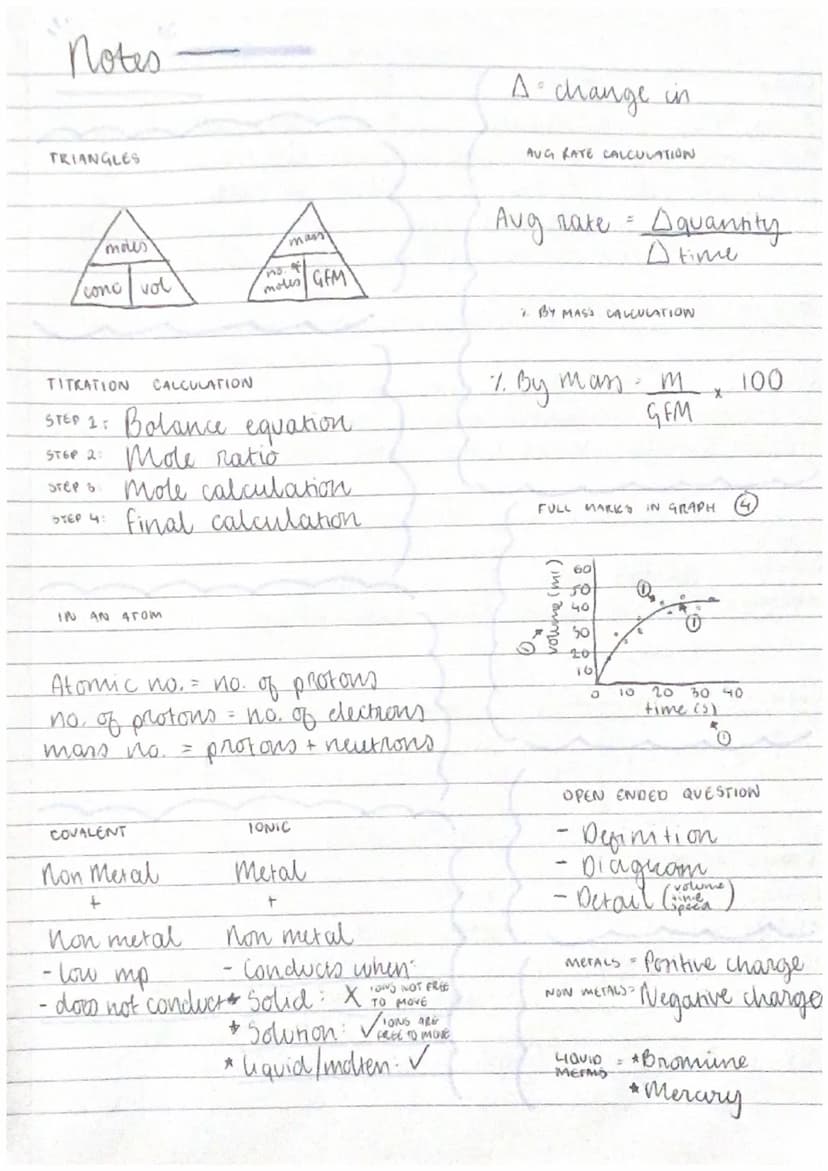 Notes
Δ = change in
TRIANGLES
moles
conc vol
mass
no. of
moles GFM
TITRATION CALCULATION
STEP 1: Balance equation
STEP 2: Mole ratio
STEP 3: Mole calculation
STEP 4: final calculation
IN AN ATOM
Atomic no. = no. of protons
no. of protons = no. of electrons
mass no. = protons + neutrons
COVALENT IONIC
Non Metal Metal
+ +
Non metal Non metal
- low mp - Conducts when:
- does not conduct * Solid: X IONS NOT FREE
TO MOVE
* Solution: ✓ IONS ARE
FREE TO MOVE
* Liquid/molten: ✓
AVG RATE CALCULATION
Avg rate = Δquantity
Δ time
% BY MASS CALCULATION
% By Mass = m × 100
GFM
FULL MARKS IN GRAPH 4
volume (ml)
60
50
40
30
20
10
0 10 20 30 40
time (s)
1
1
1
1
OPEN ENDED QUESTION
- Definition
- Diagram
- Detail (volume
time
speed)
METALS = Positive charge
NON METALS = Negative charge
LIQUID
METALS = * Bromine
* Mercury